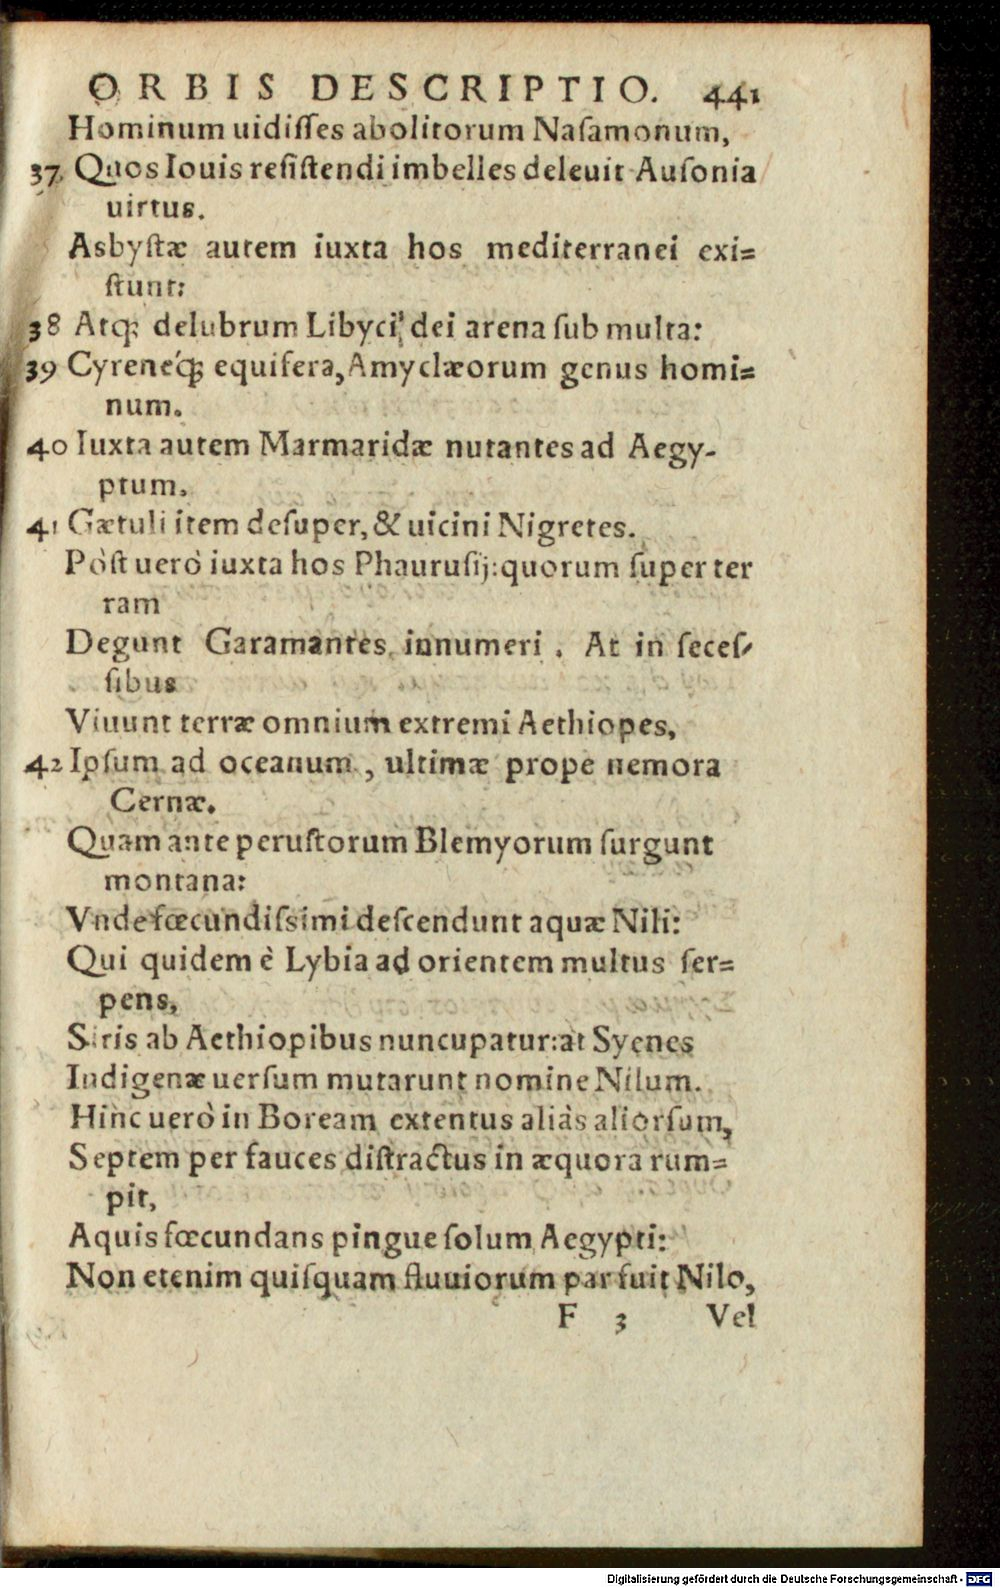 ORBIS DESCRIPTIO. 441
Hominum uidiſſes abolitorum Naſamonum,
37 Quos Iouis reſiſtendi imbelles deleuit Auſonia
uirtus.
Asbyſtæ autem iuxta hos mediterranei exi=
ſtunt:
38 Atq; delubrum Libyci dei arena ſub multa:
39 Cyrenéq; equifera, Amyclæorum genus homi=
num.
40 Iuxta autem Marmaridæ nutantes ad Aegy-
ptum.
41 Gætuli item deſuper, & uicini Nigretes.
Pòſt uerò iuxta hos Phaurusij: quorum ſuper ter
ram
Degunt Garamantes innumeri. At in ſeceſ-
ſibus
Viuunt terræ omnium extremi Aethiopes,
42 Ipſum ad oceanum, ultimæ prope nemora
Cernæ.
Quam ante peruſtorum Blemyorum ſurgunt
montana:
Vnde fœcundiſsimi deſcendunt aquæ Nili:
Qui quidem è Lybia ad orientem multus ſer=
pens,
Siris ab Aethiopibus nuncupatur: at Syenes
Indigenæ uerſum mutarunt nomine Nilum.
Hinc uerò in Boream extentus aliàs aliorſum,
Septem per fauces diſtractus in æquora rum=
pit,
Aquis fœcundans pingue ſolum Aegypti:
Non etenim quiſquam fluuiorum par fuit Nilo,
F 3 Vel
Digitalisierung gefördert durch die Deutsche Forschungsgemeinschaft - DFG